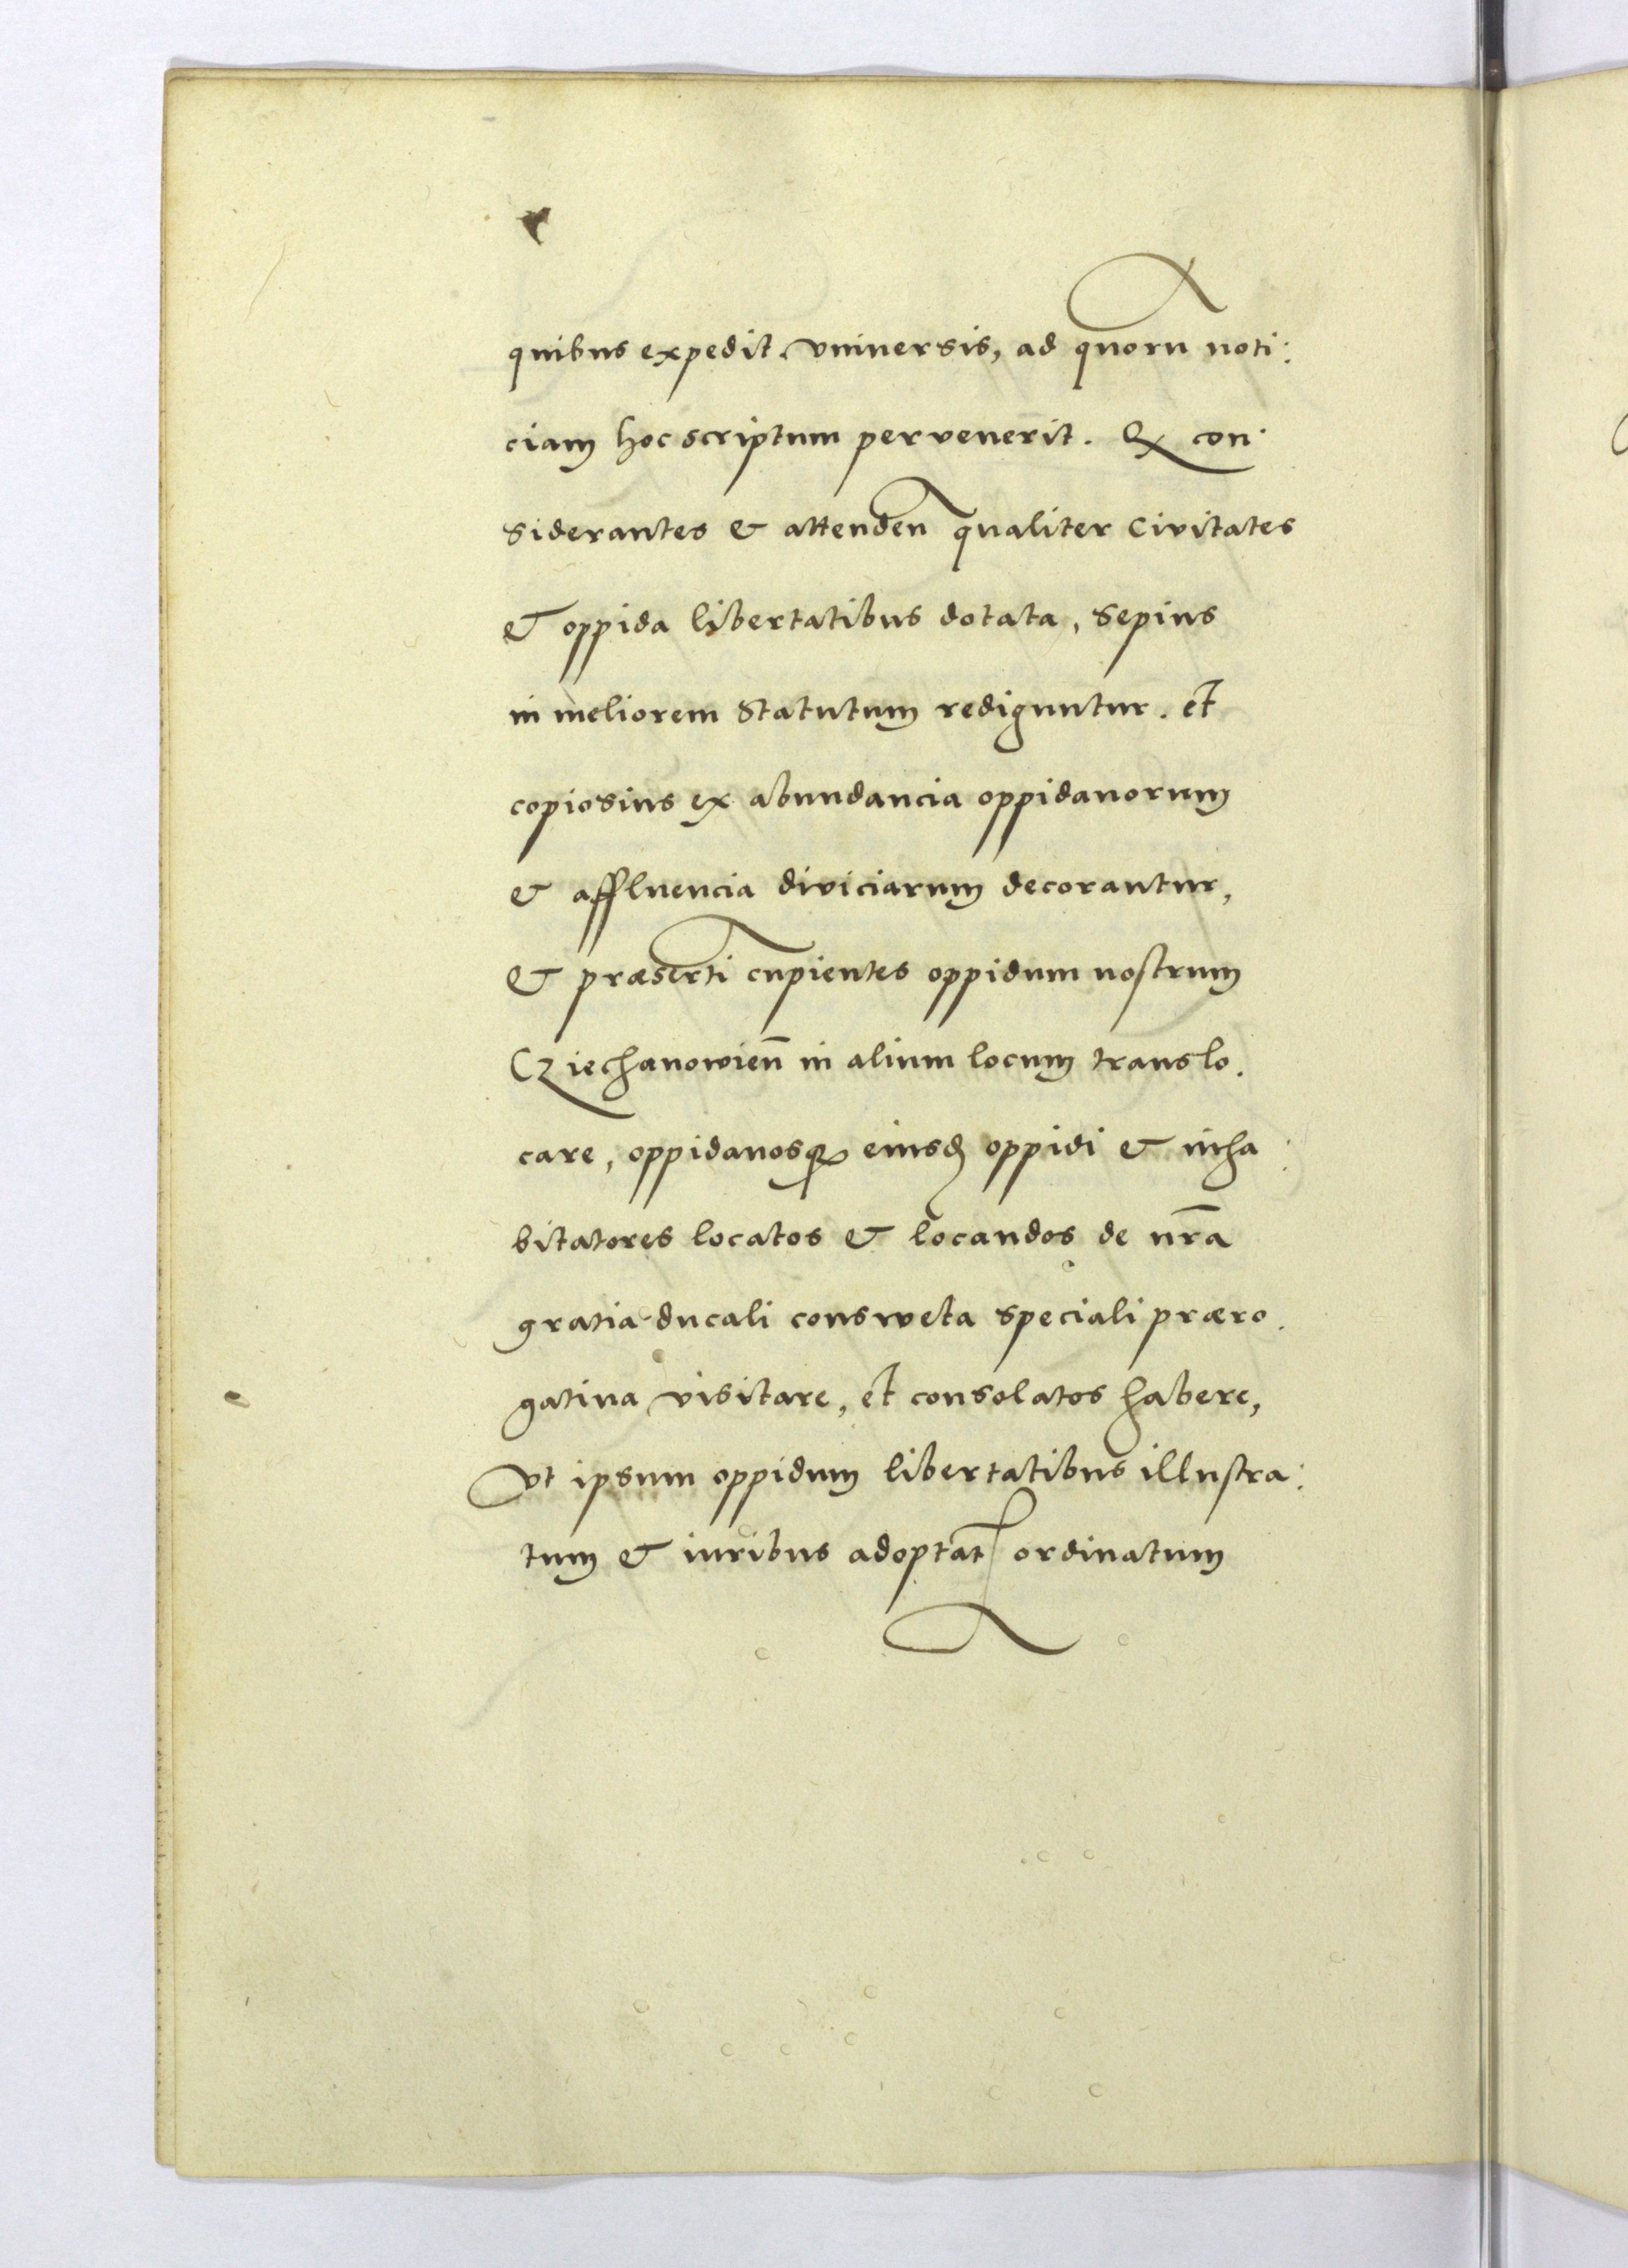 quibus expedit vniuersis, ad quorũ noti:
ciam hoc scriptum pervenerit. Ex con:
siderantes & attendeñ qualiter Civitates
& oppida libertatibus dotata, sepius
in meliorem Statutum rediguntur. et
copiosius ex abundancia oppidanorum
& affluencia diviciarum decorantur,
& præsertĩ cupientes oppidum nostrum
Cziechanowieñ in alium locum translo.
care, oppidanosq̃ eiusd oppidi & inha:
bitatores locatos & locandos de nr̃a
gratia ducali consweta speciali præro.
gatiua visitare, et consolatos habere,
vt ipsum oppidum libertatibus illustra:
tum & iuribus adoptat̃ ordinatum